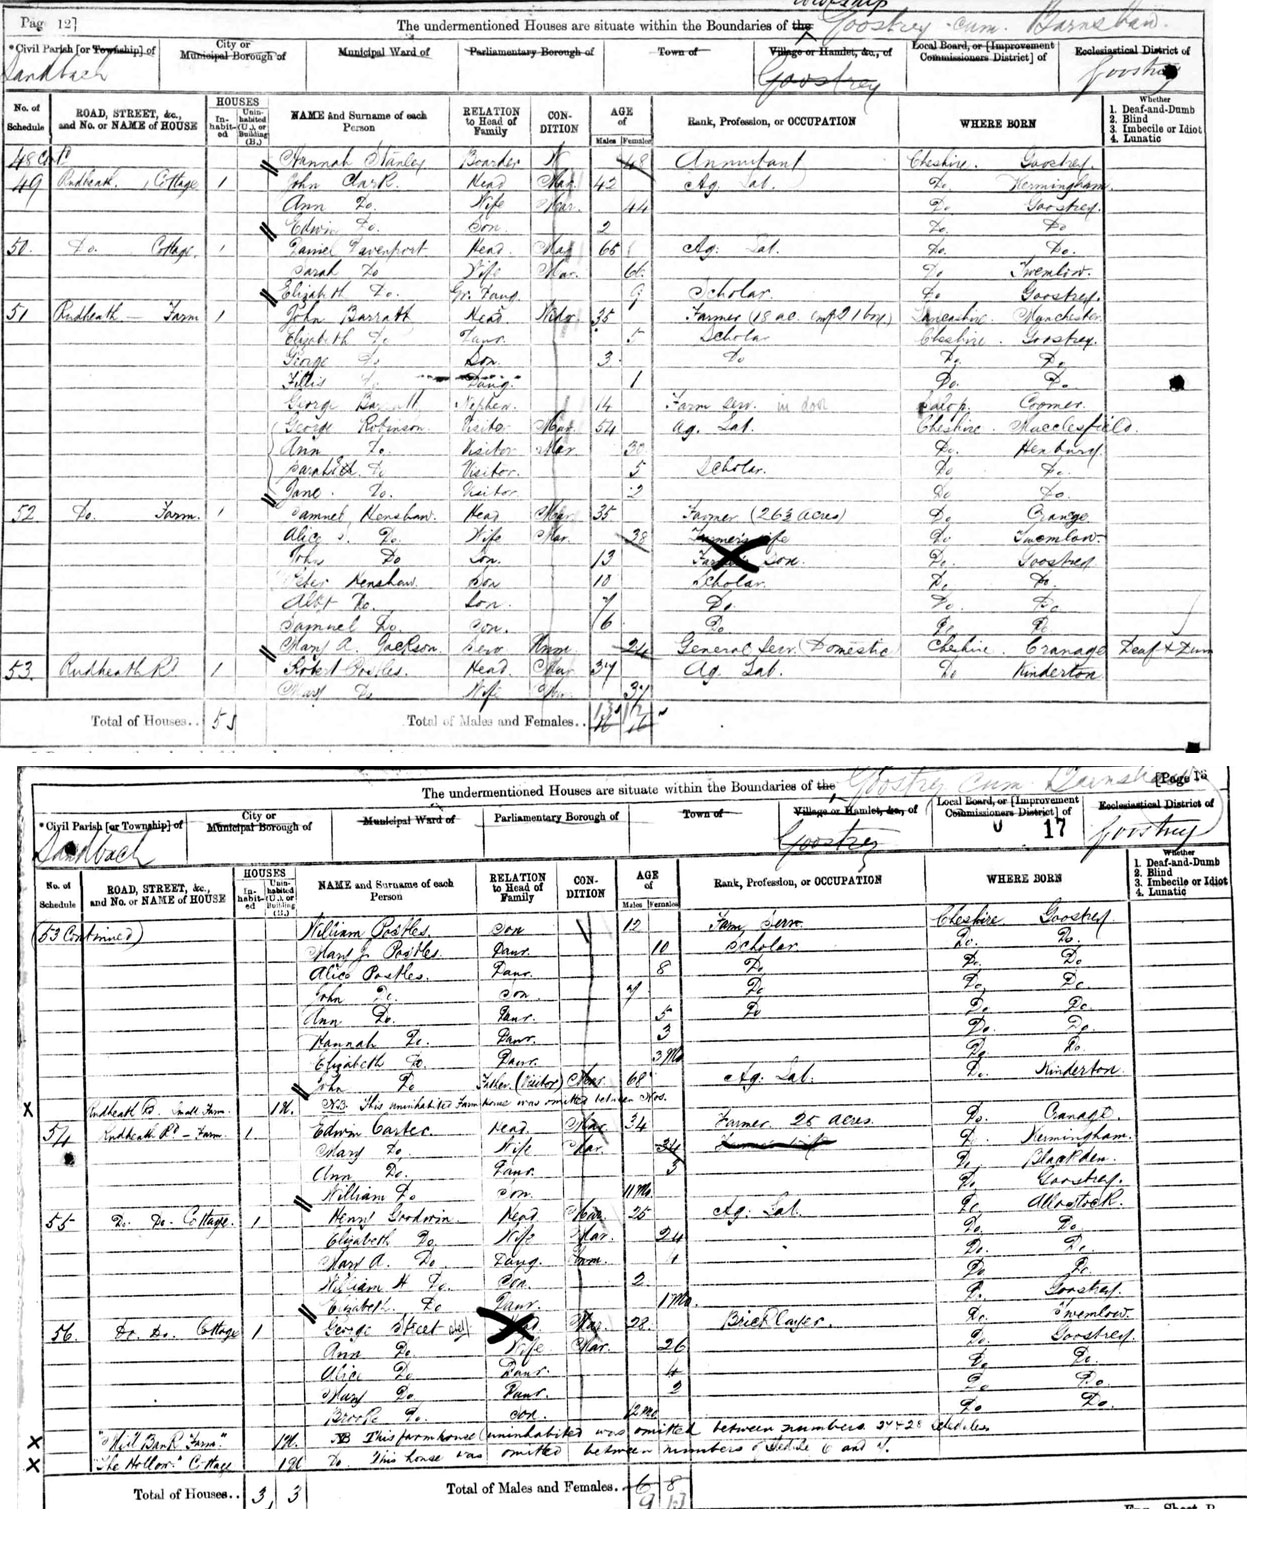 Page 12]
The undermentioned Houses are situate within the Boundaries of the Township Goostrey cum Barnshaw.
*Civil Parish [or Township] of Sandbach
City or Municipal Borough of
Municipal Ward of
Parliamentary Borough of
Town of
Village or Hamlet, &c., of Goostrey
Local Board, or [Improvement Commissioners District] of
Ecclesiastical District of Goostrey
No. of Schedule
ROAD, STREET, &c., and No. or NAME of HOUSE
HOUSES
In-habit-ed
Unin-habited (U.), or Building (B.)
NAME and Surname of each Person
RELATION to Head of Family
CON-DITION
AGE of
Males
Females
Rank, Profession, or OCCUPATION
WHERE BORN
Whether
1. Deaf-and-Dumb
2. Blind
3. Imbecile or Idiot
4. Lunatic
Hannah Stanley Boarder 48 Annuitant Cheshire. Goostrey.
49 Rudheath, Cottage 1 John Clark. Head Mar. 42 Ag. Lab. Do. Kermingham.
Ann Do. Wife Mar. 44 Do. Goostrey.
Edwin Do. Son. 2 Do. Do
50. Do. Cottage. 1 Daniel Davenport Head. Mar 65 Ag. Lab. Do. Do.
Sarah Do Wife Mar. 66. Do Twemlow.
Elizabeth Do. Gr. Daug. 9 Scholar. Do Goostrey.
51 Rudheath — Farm 1 John Barratt Head Widr. 35 Farmer (18 ac. 1 boy) Lancashire. Manchester
Elizabeth Do Daur. 5 Scholar Cheshire. Goostrey.
George Do Son. 3. Do Do. Do.
Fillis Do. Daug. 1 Do. Do
George Barratt Nephew. 14 Farm serv. in door Salop.
George Robinson. Visitor Mar. 54 Ag. Lab. Cheshire. Macclesfield.
Ann Do. Visitor Mar. 30 Do. Henbury
Do Visitor. 5 Scholar. Do Do.
Jane. Do. Visitor 2 Do Do.
52 Do. Farm. 1 Samuel Henshaw. Head Mar 35 Farmer (26½ acres) Do Cranage
Alice Do. Wife Mar. 38 Farmer's wife Do Twemlow.
John Do Son. 13 Farmer's Son. Do. Goostrey
Peter Henshaw. Son 10 Scholar. Do Do.
Albt Do. Son. 7 Do. Do. Do.
Samuel Do. Son. 6 Do. Do. Do.
Mary A. Jackson. Serv Unm. 24 General Serv. (Domestic) Cheshire. Cranage Deaf & Dum
53. Rudheath Rd 1 Robert Postles. Head. Mar 37 Ag. Lab. Do Kinderton
Mary Do Wife Mar. 37
Total of Houses.. 5
Total of Males and Females..
[Page 13
The undermentioned Houses are situate within the Boundaries of the Goostrey cum Barnshaw
*Civil Parish [or Township] of Sandbach
City or Municipal Borough of
Municipal Ward of
Parliamentary Borough of
Town of
Village or Hamlet, &c., of Goostrey
Local Board, or [Improvement Commissioners District] of
17
Ecclesiastical District of Goostrey
No. of Schedule
ROAD, STREET, &c., and No. or NAME of HOUSE
HOUSES
In-habit-ed
Unin-habited (U.), or Building (B.)
NAME and Surname of each Person
RELATION to Head of Family
CON-DITION
AGE of
Males
Females
Rank, Profession, or OCCUPATION
WHERE BORN
Whether
1. Deaf-and-Dumb
2. Blind
3. Imbecile or Idiot
4. Lunatic
(53 Continued) William Postles. Son 12 Farm Serv. Cheshire Goostrey
Mary J. Postles Daur. 10 Scholar. Do. Do.
Alice Postles. Daur. 8 Do Do. Do
John Do. Son. 7 Do Do. Do.
Ann Do. Daur. 5 Do Do. Do.
Hannah Do. Daur. 3 Do. Do.
Elizabeth Do. Daur. 3 Mo Do. Do
John Do Father (Visitor) Mar. 68 Ag. Lab. Do. Kinderton
X Rudheath Rd. Small Farm. 1 U. N.B. This uninhabited Farm house was omitted between Nos.
54 Rudheath Rd – Farm. 1. Edwin Carter. Head. Mar 34 Farmer. 25 acres. Do. Cranage.
Mary Do Wife Mar. 34 Do. Kermingham.
Ann Do. Daur. 3 Do. Blackden.
William Do Son. 11 Mo. Do. Goostrey.
55 Do. Do. Cottage. 1 Henry Goodwin. Head Mar 25 Ag. Lab. Do. Allostock.
Elizabeth Do Wife Mar. 24 Do. Do.
Mary A. Do. Daug. 1 Do. Do.
William H Do. Son. 2. Do. Do
Elizabeth. Do Daur. 1 Mo. Do. Goostrey.
56. Do. Do. Cottage 1 George Street Head Mar. 28. Brick Layer. Do. Twemlow.
Ann Do. Wife Mar. 26 Do. Goostrey.
Alice Do Daur. 4 Do Do.
Mary Do Daur. 2 Do Do.
Do. Son. 12 Mo Do Do
X "Mill Bank Farm." 1 U. NB This farmhouse (uninhabited was omitted between numbers 27 & 28 Schedules
X "The Hollow" Cottage 1 U Do. This house was omitted between numbers of
Total of Houses.. 3, 3
Total of Males and Females.. 6 8
9